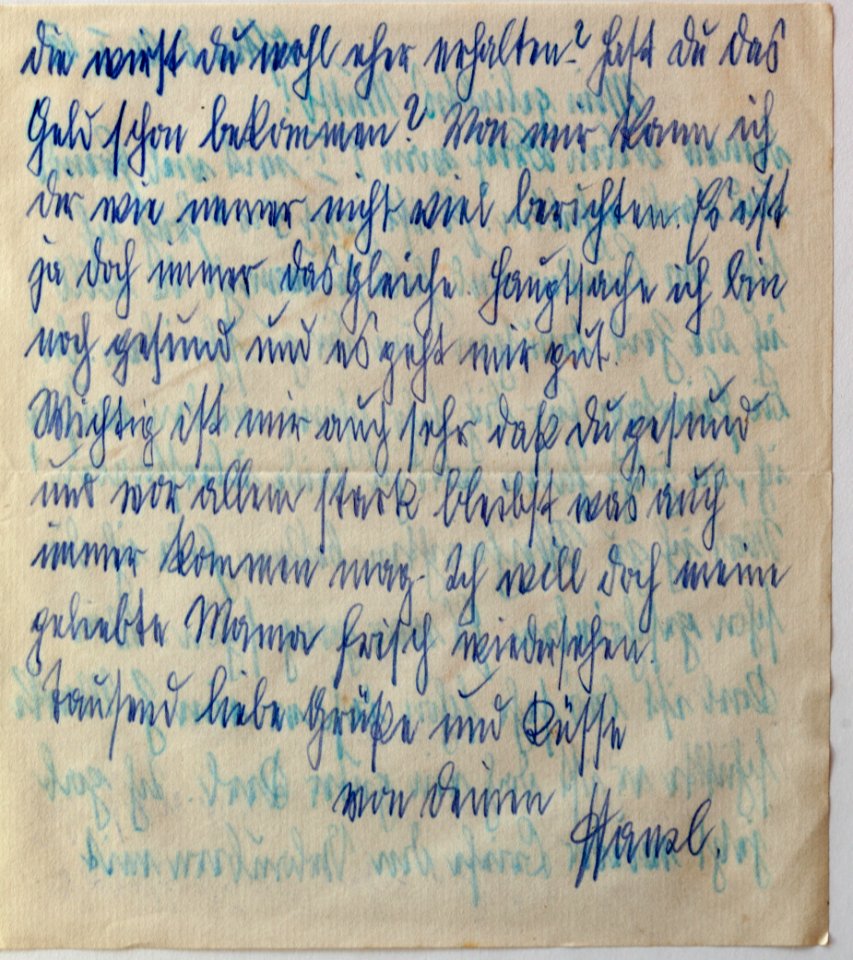 die wirst du wohl eher erhalten? Hast du das
Geld schon bekommen? Von mir kann ich
dir wie immer nicht viel berichten. Es ist
ja doch immer das Gleiche. Hauptsache ich bin
noch gesund und es geht mir gut.
Wichtig ist mir auch sehr daß du gesund
und vor allem stark bleibst was auch
immer kommen mag. Ich will doch meine
geliebte Mama frisch wiedersehen.
Tausend liebe Grüße und Küsse
von deinem